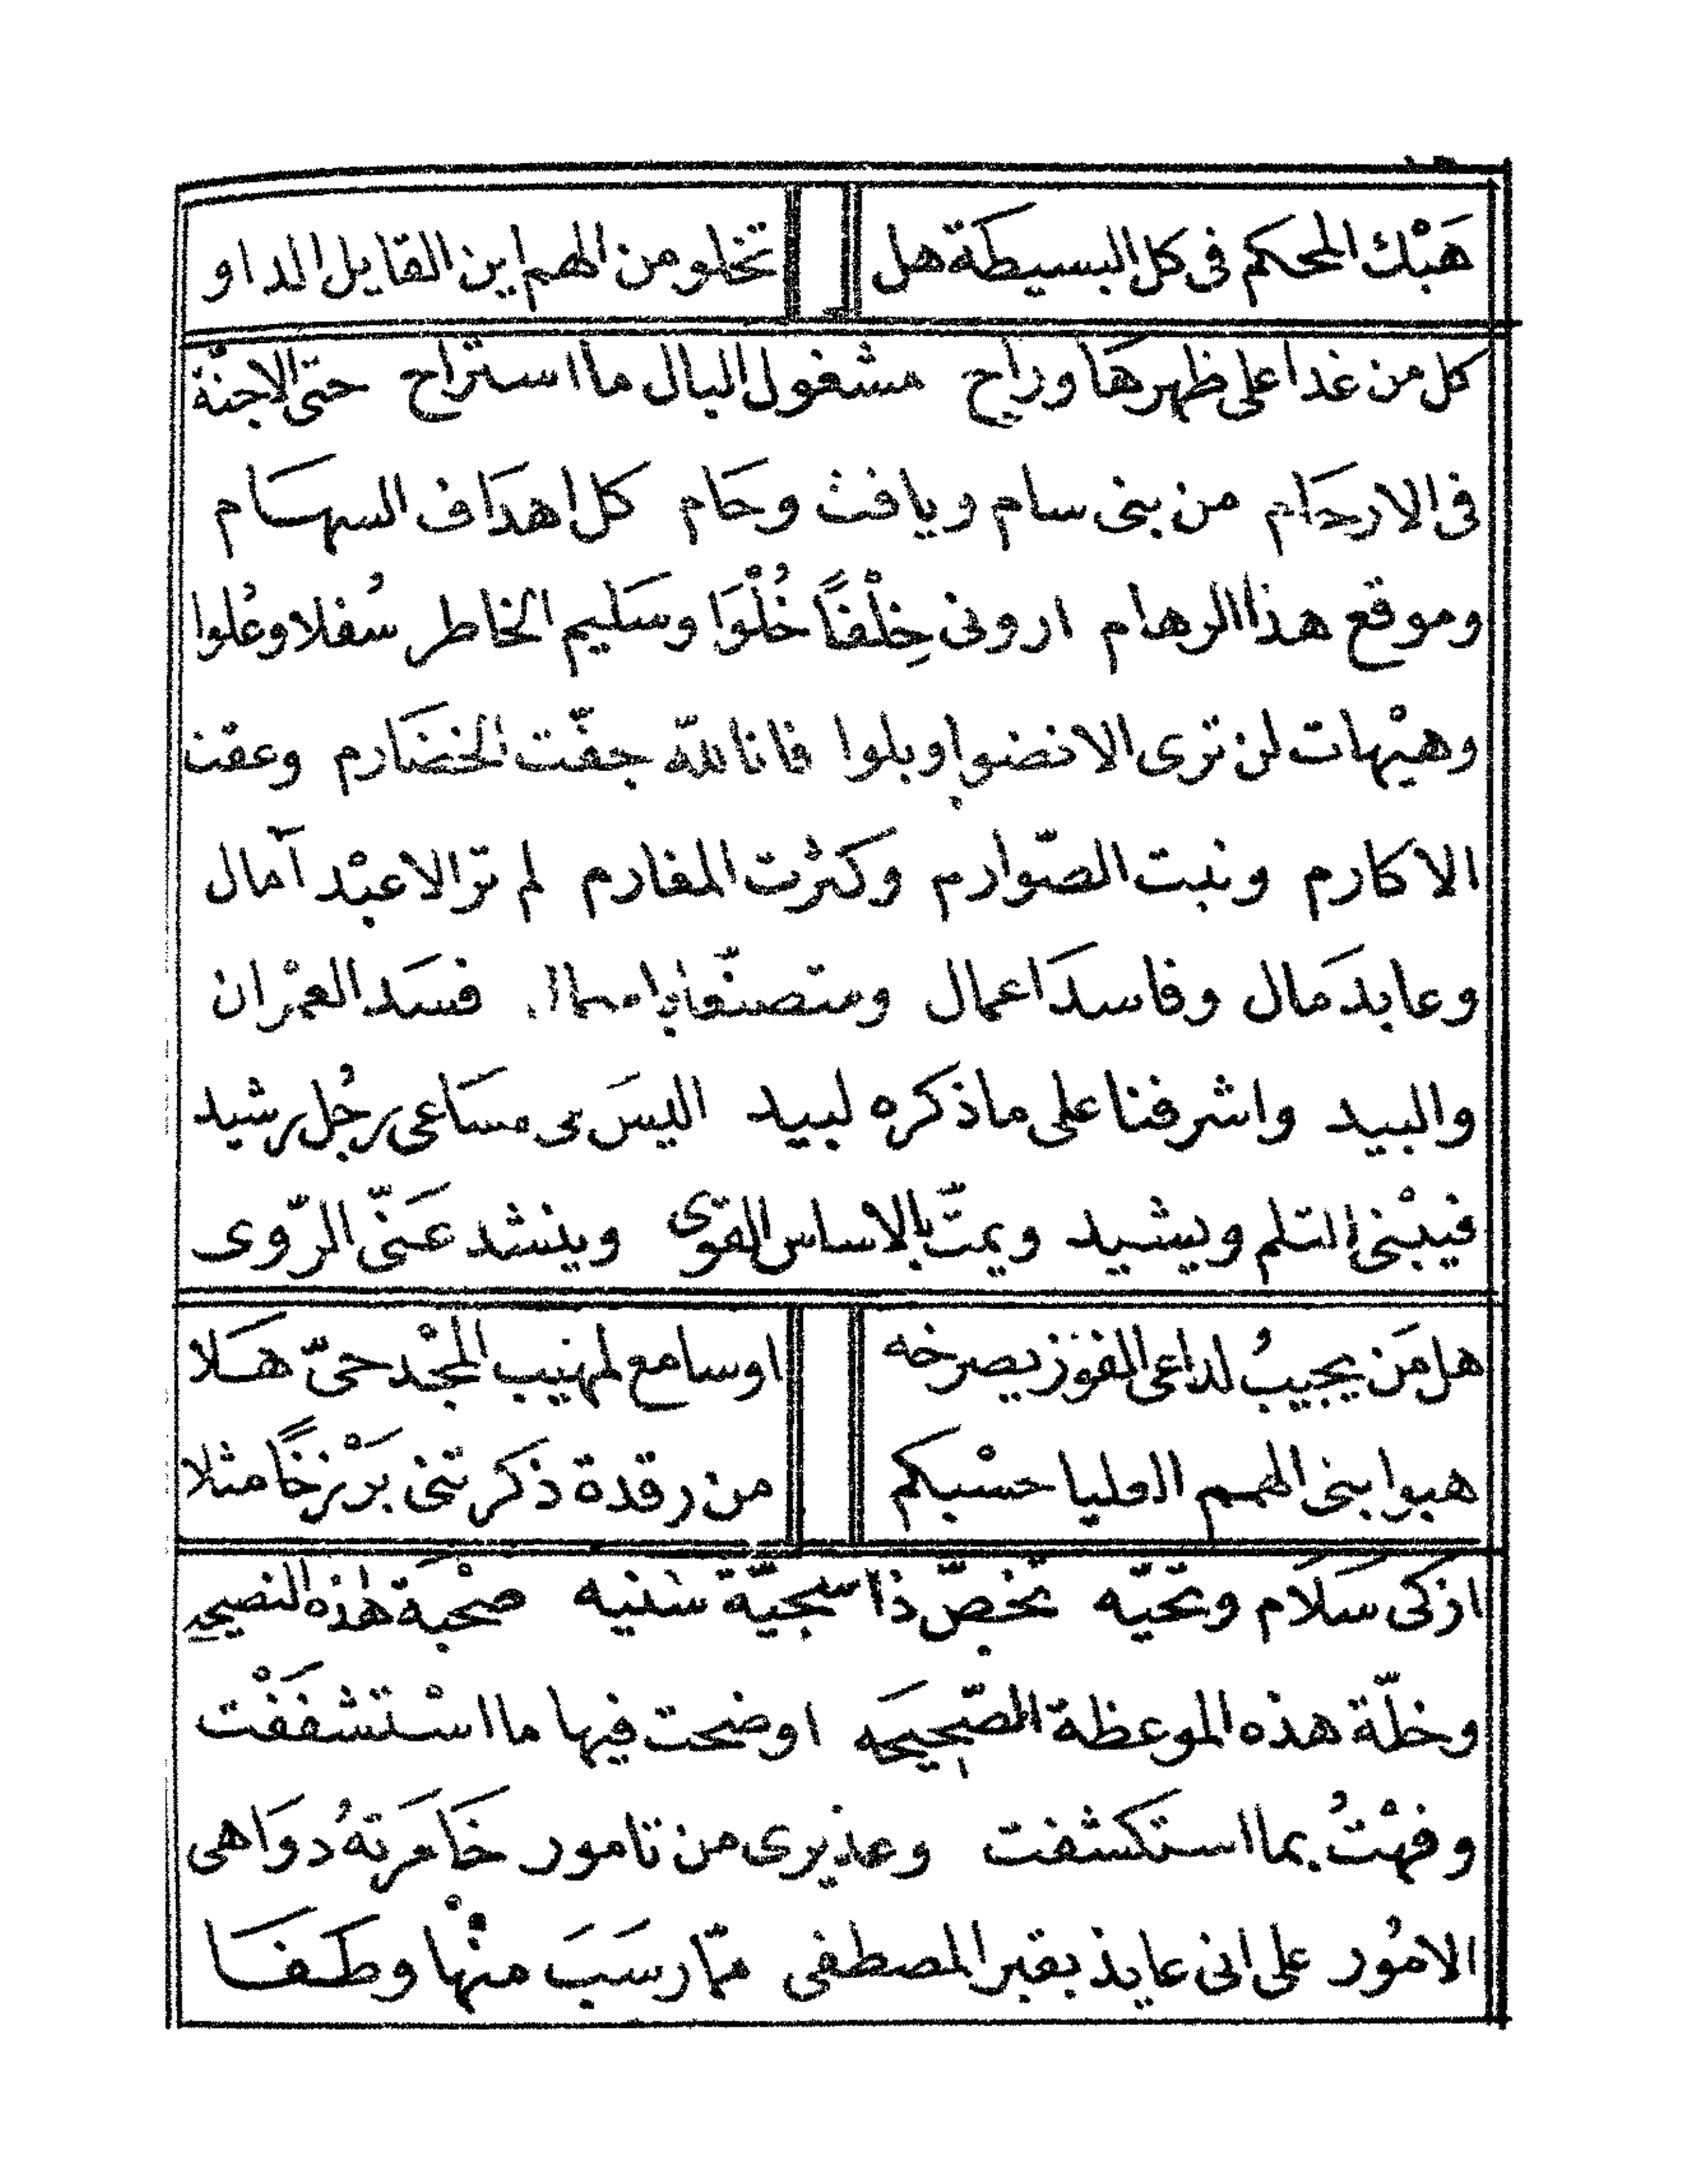 هَبْك المحكم فى كل البسيطة هل تخلو من الهم اين القايل الداو
كل من غدا على ظهرها وراح مشغول البال ما استراح حتى الاجنّة
فى الارحام من بنى سام ويافث وحام كل اهداف السهام
وموقع هذا الرهام ارونى خِلْفًا خُلْوَا وسَليم الخاطر سُفلا وعُلوا
وهيْهات لن ترى الا نضوا وبلوا فانا للّه جفّت الخضارم وعقت
الاكارم ونبت الصّوارم وكثرت المغارم لم تر الا عبْد آمال
وعابدَ مَال وفاسدَ اعمال ومتصنّعا فسَد العمْران
والبيد واشرفنا على ما ذكره لبيد اليسَ مسَاعى رجُل رشيد
فيبْنى الثلم ويشيد ويمتّ بالاساس القوى وينشد عَنّى الرّوى
هل مَن يجيبُ لداعى الفوز يصرخه اوسامع لمهيب المجْد حىّ هَلا
هبوا بنى الهمم العليا حسْبكم من رقدة ذكرتنى بَرْزخًا مثلا
ازكى سَلَام وتحيّه تخصّ ذا سجيّة سَنيه صحْبة هذه النصيحه
وخلّة هذه الموعظة الصّحيحَه اوضحت فيها ما اسْتشفَفْت
وفهْتُ بما استكشفت وعذيرى من تامور خَامَرتهُ دوَاهى
الامُور على انى عايذ بقبر المصطفى ممّا رسَبَ منْها وطَفَا